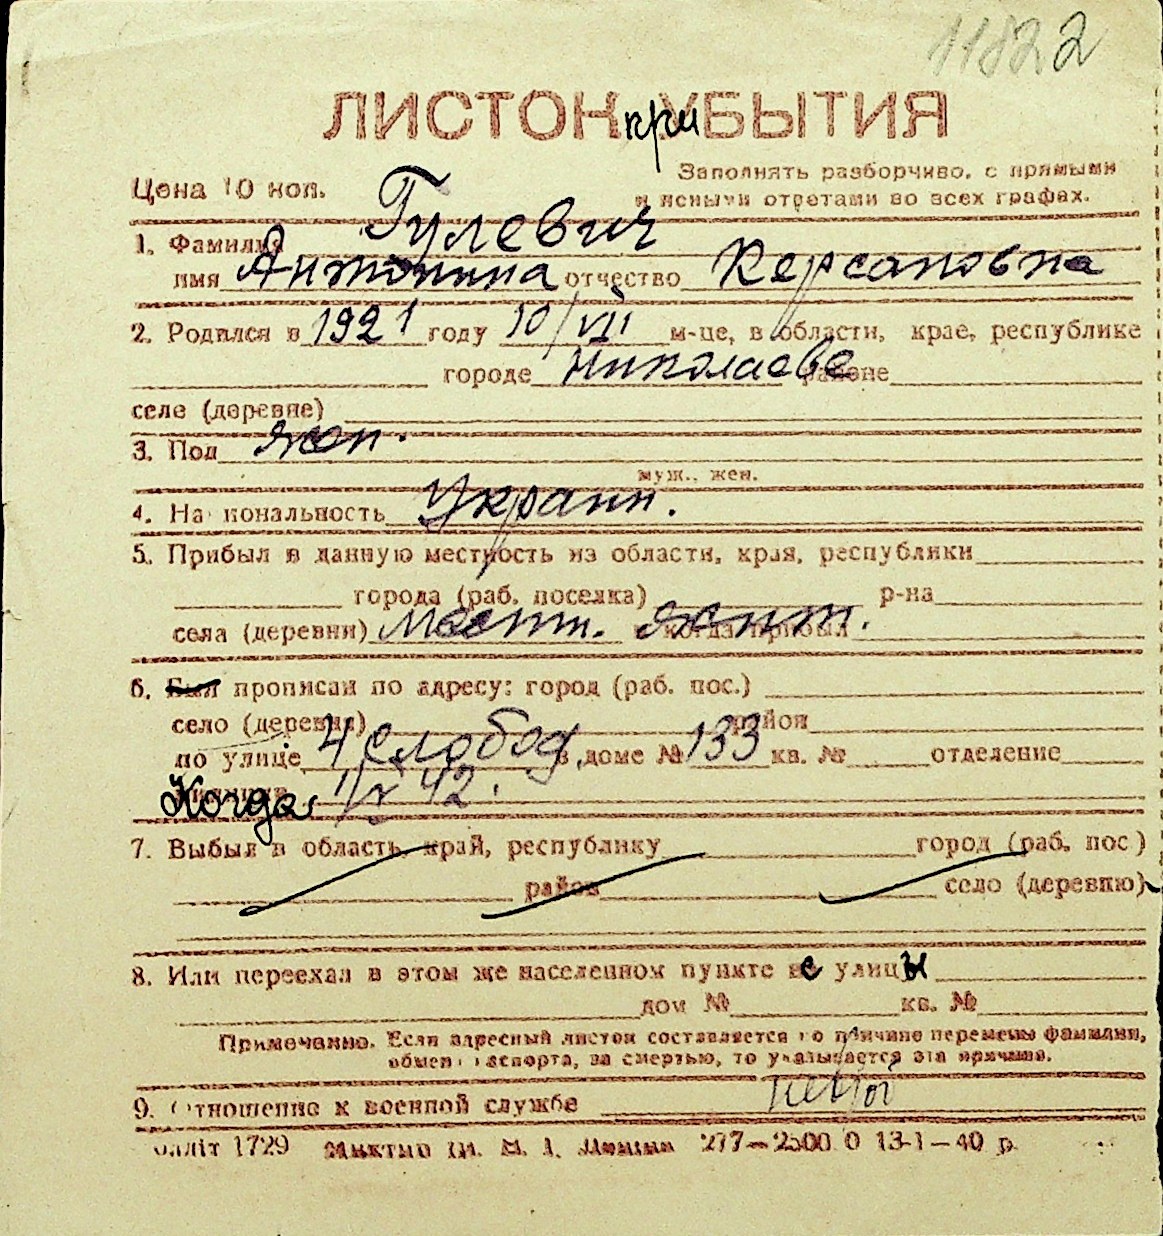 11822
ЛИСТОК при УБЫТИЯ
Цена 10 коп.
Заполнять разборчиво, с прямыми
и ясными ответами во всех графах.
1. Фамилия Гулевич
имя Антонина отчество Керсановна
2. Родился в 1921 году 10/VII м-це, в области, крае, республике
городе Николаеве районе
селе (деревне)
3. Пол жен.
муж., жен.
4. На иональность Украин.
5. Прибыл в данную местность из области, края, республики
города (раб. поселка) р-на
села (деревни) местн. жит. когда прибыл
6. Был прописан по адресу: город (раб. пос.)
село (деревня) район
по улице 4 слобод. в доме № 133 кв. № отделение
Когда 1/V 42.
7. Выбыл в область, край, республику город (раб. пос)
район село (деревню)
8. Или переехал в этом же населенном пункте с улицы
дом № кв. №
Примечание. Если адресный листок составляется по причине перемены фамилии,
обмен паспорта, за смертью, то указывается эта причина.
9. Отношение к военной службе
олліт 1729 277—2500 0 13-1—40 р.